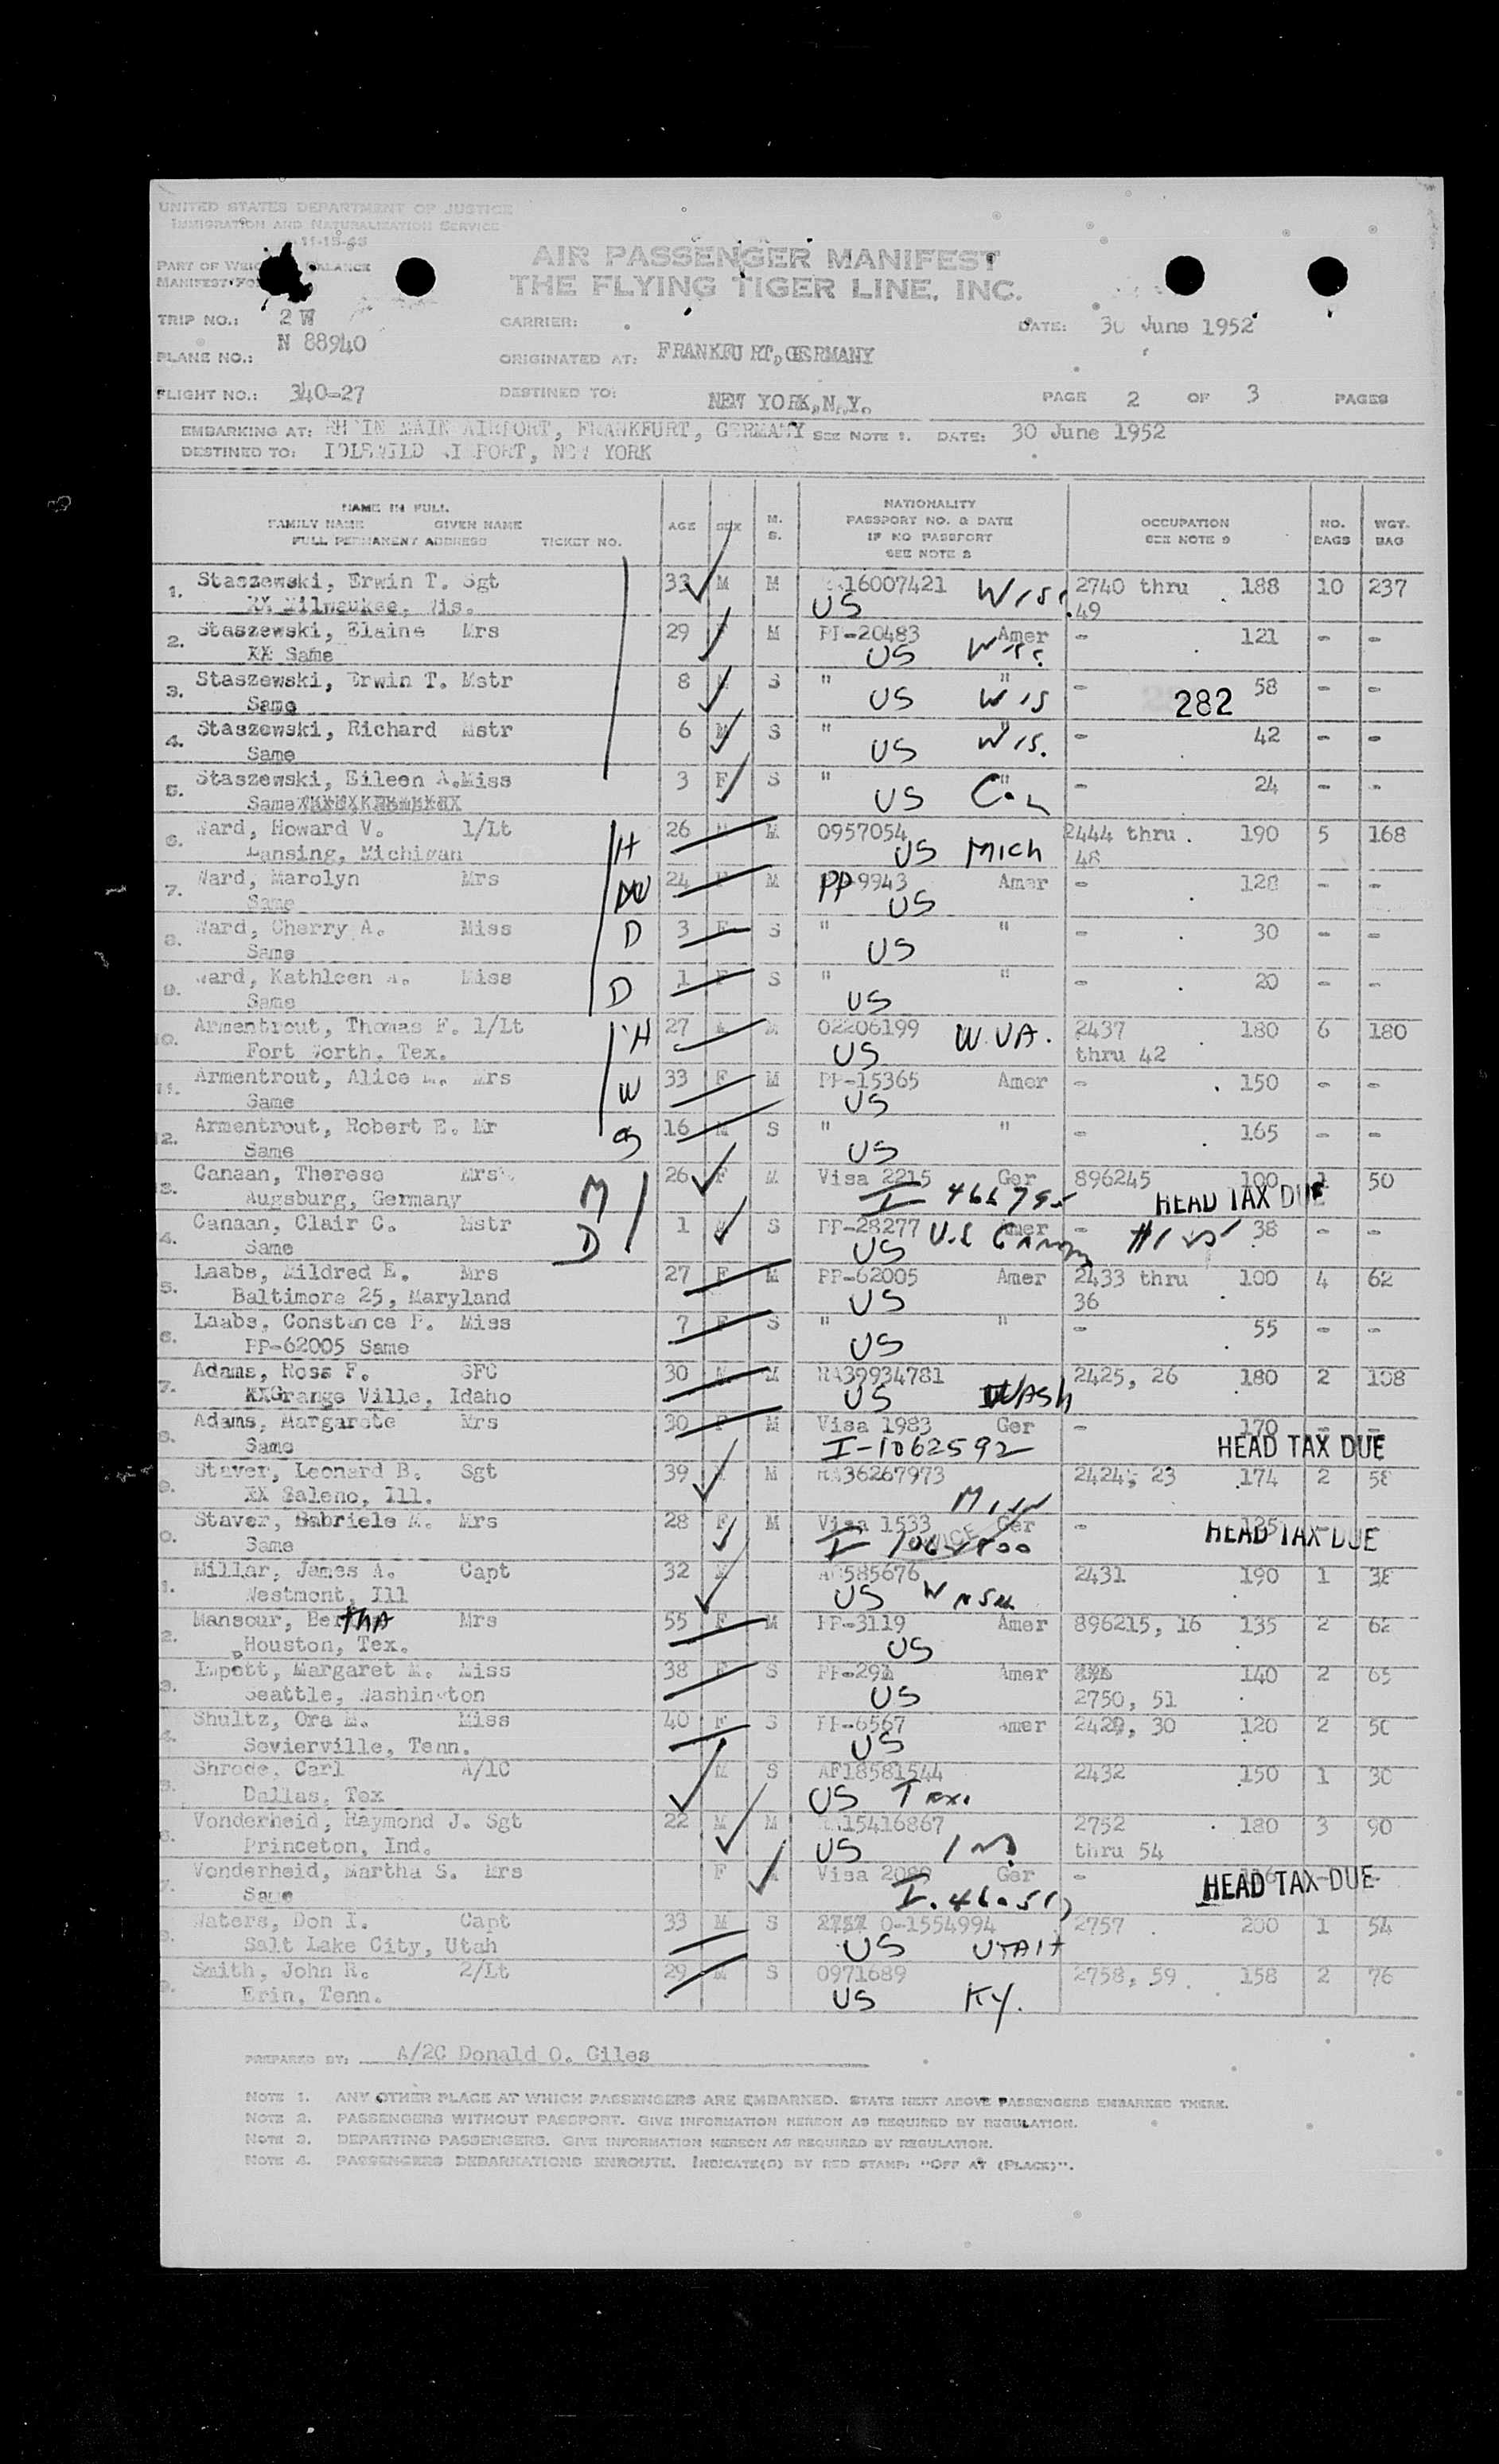 UNITED STATES DEPARTMENT OF JUSTICE
IMMIGRATION AND NATURALIZATION SERVICE
11-15-48
PART OF BALANCE
MANIFEST
AIR PASSENGER MANIFEST
THE FLYING TIGER LINE, INC.
TRIP NO.: 2 W CARRIER: DATE: 30 June 1952
PLANE NO.: N 88940 ORIGINATED AT: FRANKFURT, GERMANY
FLIGHT NO.: 340-27 DESTINED TO: NEW YORK, N.Y. PAGE 2 OF 3 PAGES
EMBARKING AT: RHEIN MAIN AIRPORT, FRANKFURT, GERMANY SEE NOTE 1. DATE: 30 June 1952
DESTINED TO: IDLEWILD AIRPORT, NEW YORK
NAME IN FULL
FAMILY NAME GIVEN NAME
FULL PERMANENT ADDRESS TICKET NO.
AGE SEX M. S.
NATIONALITY
PASSPORT NO. & DATE
IF NO PASSPORT
SEE NOTE 2
OCCUPATION
SEE NOTE 3
NO. BAGS
WGT. BAG
1. Staszewski, Erwin T. Sgt 33 M M 16007421 Wis. 2740 thru 188 10 237
XX Milwaukee, Wis. US 49
2. Staszewski, Elaine Mrs 29 M PP-20483 Amer - 121 - -
XX Same US
3. Staszewski, Erwin T. Mstr 8 S " " - 58 - -
Same US Wis 282
4. Staszewski, Richard Mstr 6 M S " " - 42 - -
Same US Wis.
5. Staszewski, Eileen A. Miss 3 F S " " - 24 - -
Same US
6. Ward, Howard V. 1/Lt H 26 M O957054 2444 thru 190 5 168
Lansing, Michigan US Mich 48
7. Ward, Marolyn Mrs 24 M PP-9943 Amer - 128 - -
Same US
8. Ward, Cherry A. Miss D 3 F S " " - 30 - -
Same US
9. Ward, Kathleen A. Miss D 1 F S " " - 20 - -
Same US
10. Armentrout, Thomas F. 1/Lt H 27 M M O2206199 W.VA. 2437 180 6 180
Fort Worth, Tex. US thru 42
11. Armentrout, Alice Mrs W 33 F M PP-15365 Amer - 150 - -
Same US
12. Armentrout, Robert E. Mr S 16 M S " " - 165 - -
Same US
3. Canaan, Therese Mrs M 26 F M Visa 2215 Ger 896245 100 1 50
Augsburg, Germany I 466795 HEAD TAX DUE
4. Canaan, Clair C. Mstr D 1 M S PP-28277 Amer - 38 - -
Same US
5. Laabs, Mildred E. Mrs 27 F M PP-62005 Amer 2433 thru 100 4 62
Baltimore 25, Maryland US 36
6. Laabs, Constance P. Miss 7 F S " " - 55 - -
PP-62005 Same US
7. Adams, Ross F. SFC 30 M M RA39934781 2425, 26 180 2 108
XXGrange Ville, Idaho US Wash
8. Adams, Margarete Mrs 30 F M Visa 1983 Ger - 170 - -
Same I-1062592 HEAD TAX DUE
9. Staver, Leonard B. Sgt 39 M RA36267973 2424, 23 174 2 58
XX Saleno, Ill.
0. Staver, Gabriele M. Mrs 28 F M Visa 1533 Ger - 125
Same HEAD TAX DUE
1. Millar, James A. Capt 32 M AO585676 2431 190 1 38
Westmont, Ill US
2. Mansour, Bertha Mrs 55 F M PP-3119 Amer 896215, 16 135 2 62
Houston, Tex. US
3. Margaret M. Miss 38 F S Amer 140 2 65
Seattle, Washington US 2750, 51
4. Shultz, Ora Miss 40 F S PP-6567 Amer 2429, 30 120 2 50
Sevierville, Tenn. US
5. Shrode, Carl A/1C M S AF18581544 2432 150 1 30
Dallas, Tex US Tex.
6. Vonderheid, Raymond J. Sgt 22 M M 15416867 2752 180 3 90
Princeton, Ind. US Ind thru 54
7. Vonderheid, Martha S. Mrs F Visa Ger -
Same HEAD TAX DUE
8. Waters, Don I. Capt 33 M S O-1554994 2757 200 1 54
Salt Lake City, Utah US UTAH
9. Smith, John R. 2/Lt 29 M S O971689 2758, 59 158 2 76
Erin, Tenn. US KY.
PREPARED BY: A/2C Donald O. Giles
NOTE 1. ANY OTHER PLACE AT WHICH PASSENGERS ARE EMBARKED. STATE NEXT ABOVE PASSENGERS EMBARKED THERE.
NOTE 2. PASSENGERS WITHOUT PASSPORT. GIVE INFORMATION HEREON AS REQUIRED BY REGULATION.
NOTE 3. DEPARTING PASSENGERS. GIVE INFORMATION HEREON AS REQUIRED BY REGULATION.
NOTE 4. PASSENGERS DEBARKATIONS ENROUTE. INDICATE(D) BY RED STAMP: "OFF AT (PLACE)".